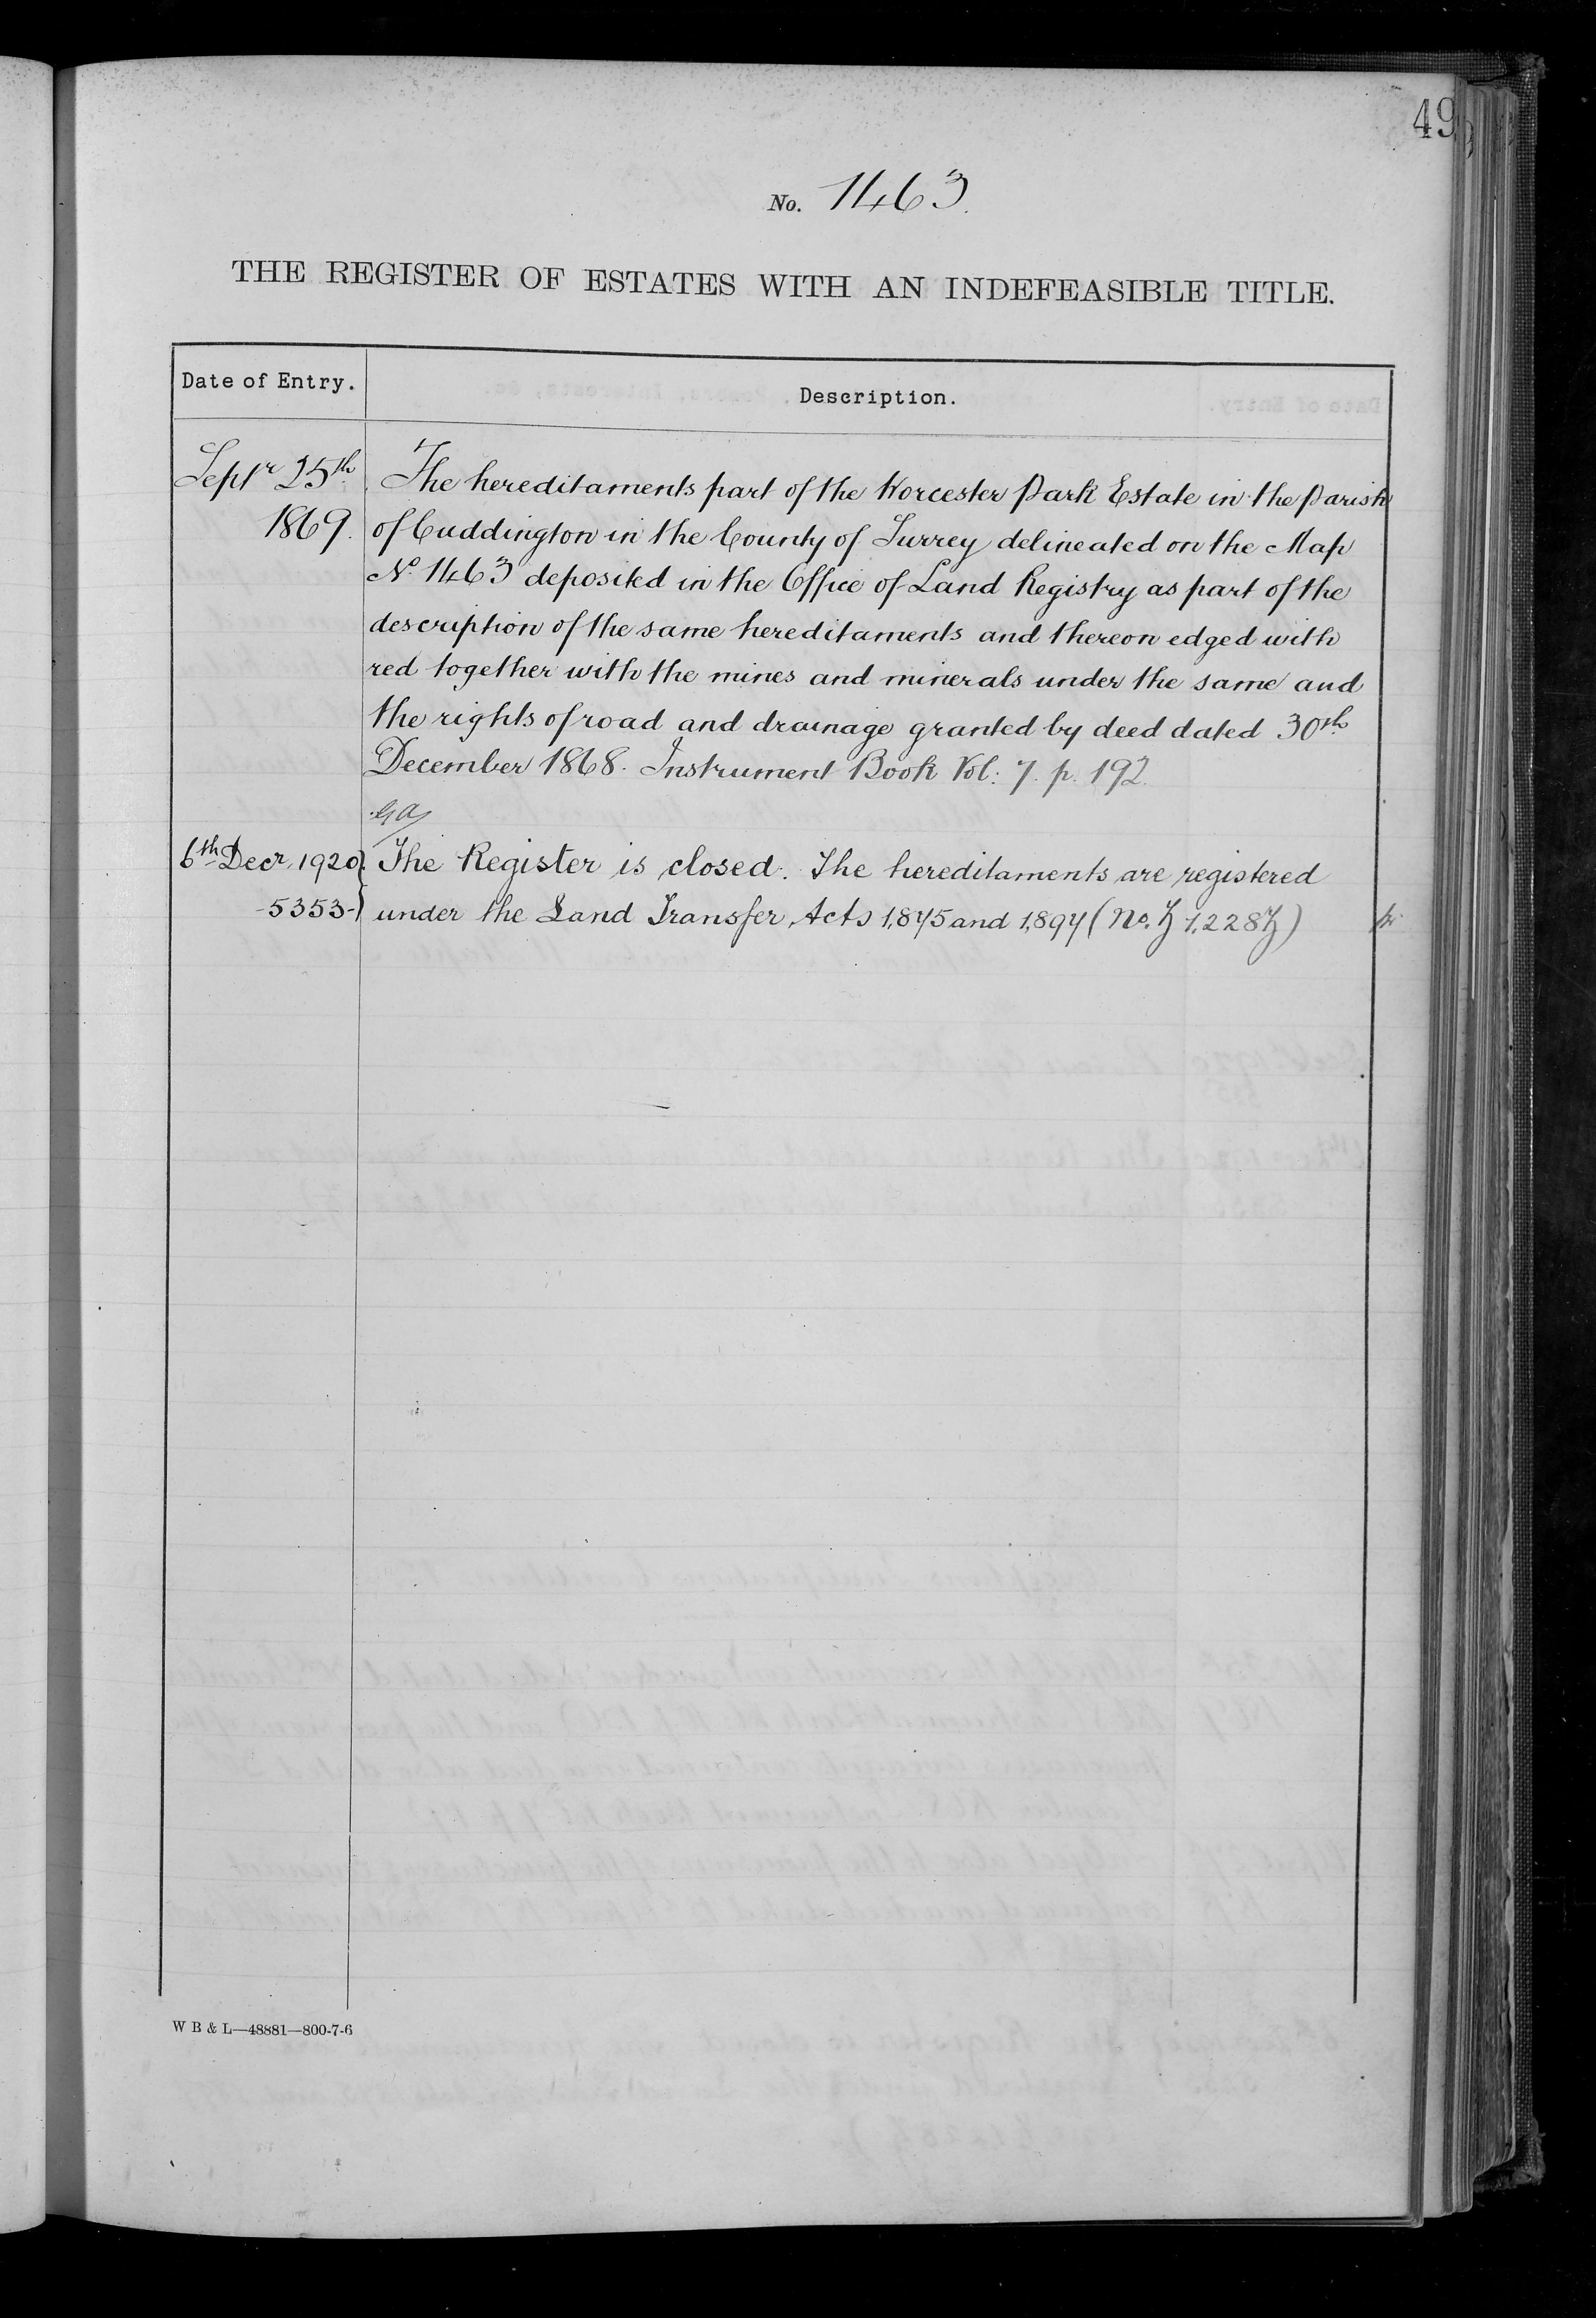 49
No. 1463.
THE REGISTER OF ESTATES WITH AN INDEFEASIBLE TITLE.
Date of Entry.
Description.
Septr 25th
1869.
The hereditaments part of the Worcester Park Estate in the Parish
of Cuddington in the County of Surrey delineated on the Map
No. 1463 deposited in the Office of Land Registry as part of the
description of the same hereditaments and thereon edged with
red together with the mines and minerals under the same and
the rights of road and drainage granted by deed dated 30th
December 1868. Instrument Book Vol: 7. p. 192.
6th Decr. 1920
-5353-
The Register is closed. The hereditaments are registered
under the Land Transfer Acts 1,875 and 1,897 (No. Z 1,228Z)
W B & L—48881—800-7-6